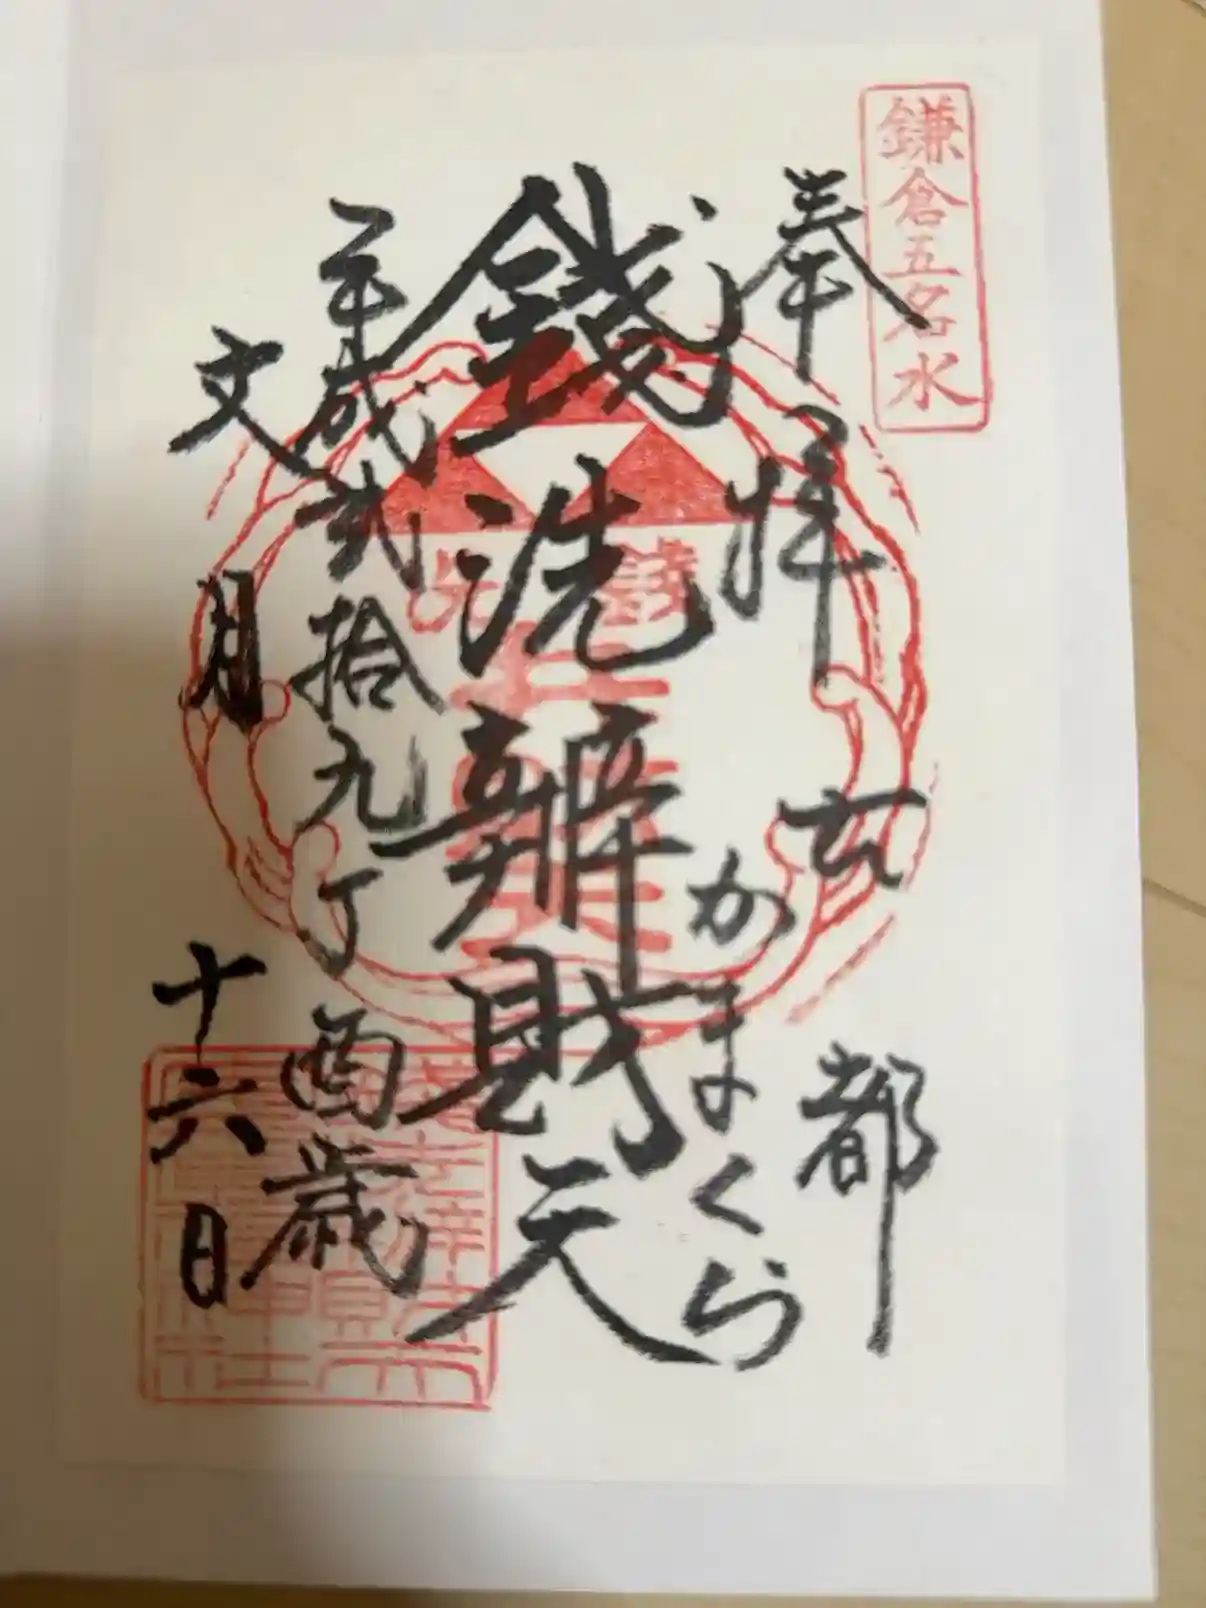 鎌倉五名水
奉拝
古都
かまくら
銭洗辨財天
平成弐拾九丁酉歳
文月十六日